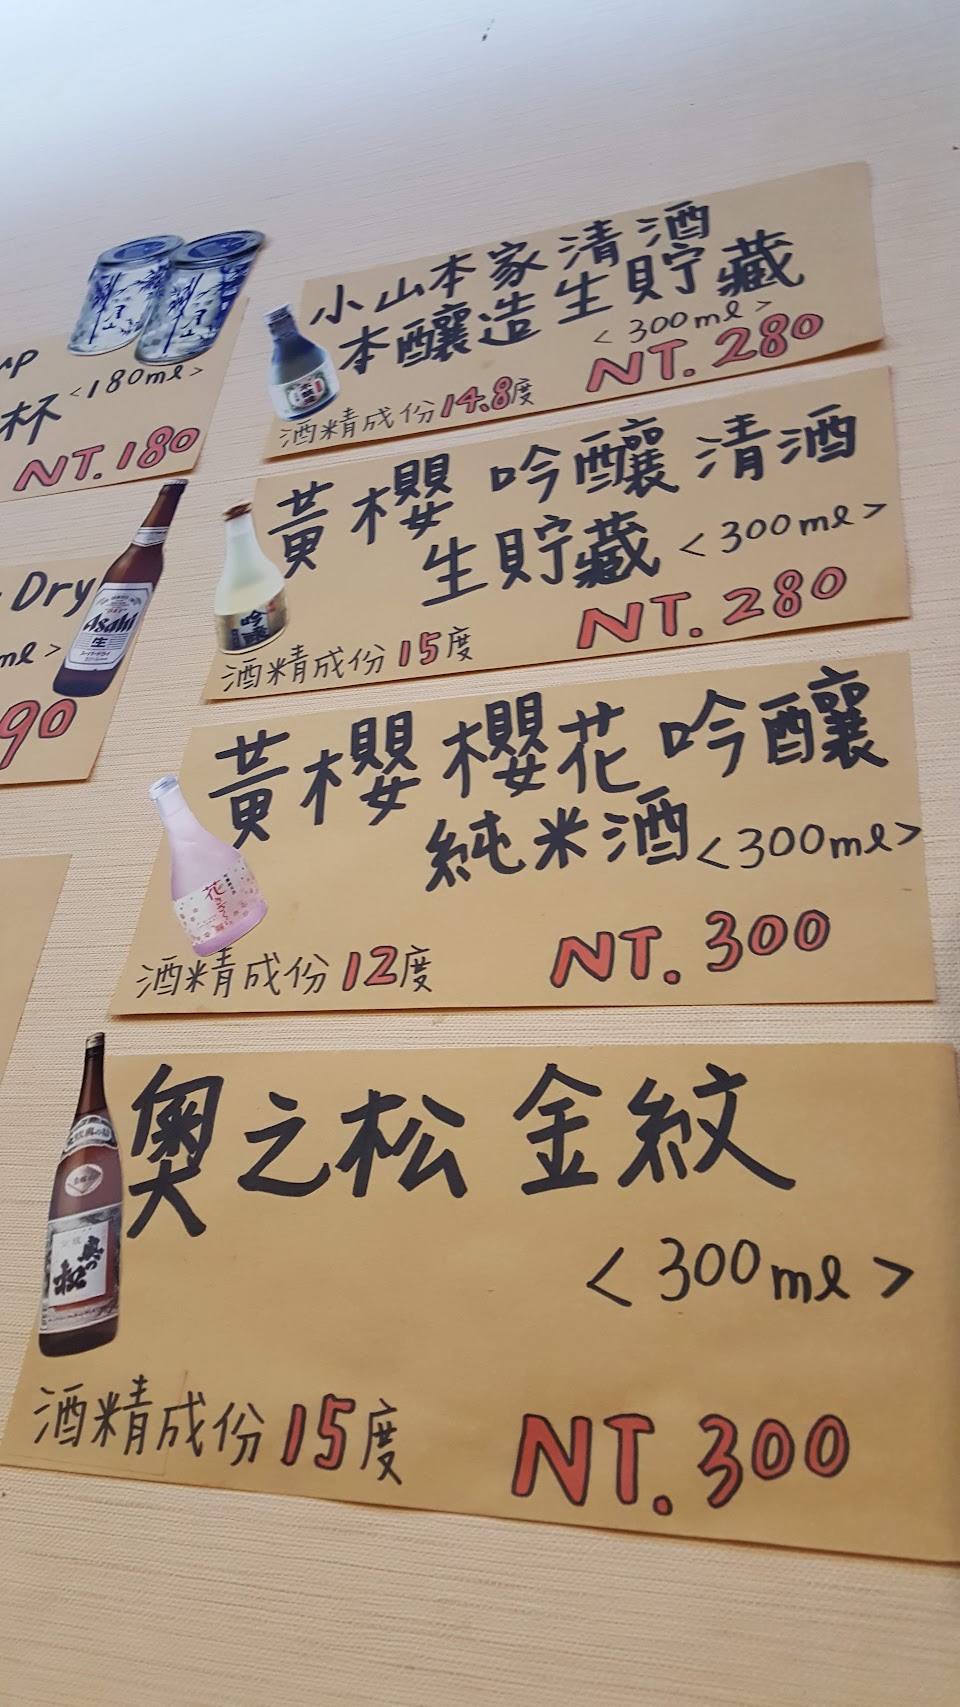 小山本家清酒
本釀造生貯藏
<300ml>
酒精成份14.8度
NT.280
黃櫻 吟釀清酒
生貯藏 <300ml>
酒精成份15度
NT.280
黃櫻櫻花吟釀
純米酒<300ml>
酒精成份12度
NT.300
奧之松 金紋
<300ml>
酒精成份15度
NT.300
杯 <180ml>
NT.180
Dry
ml>
90
Asahi
生
吟釀
花
奥の松